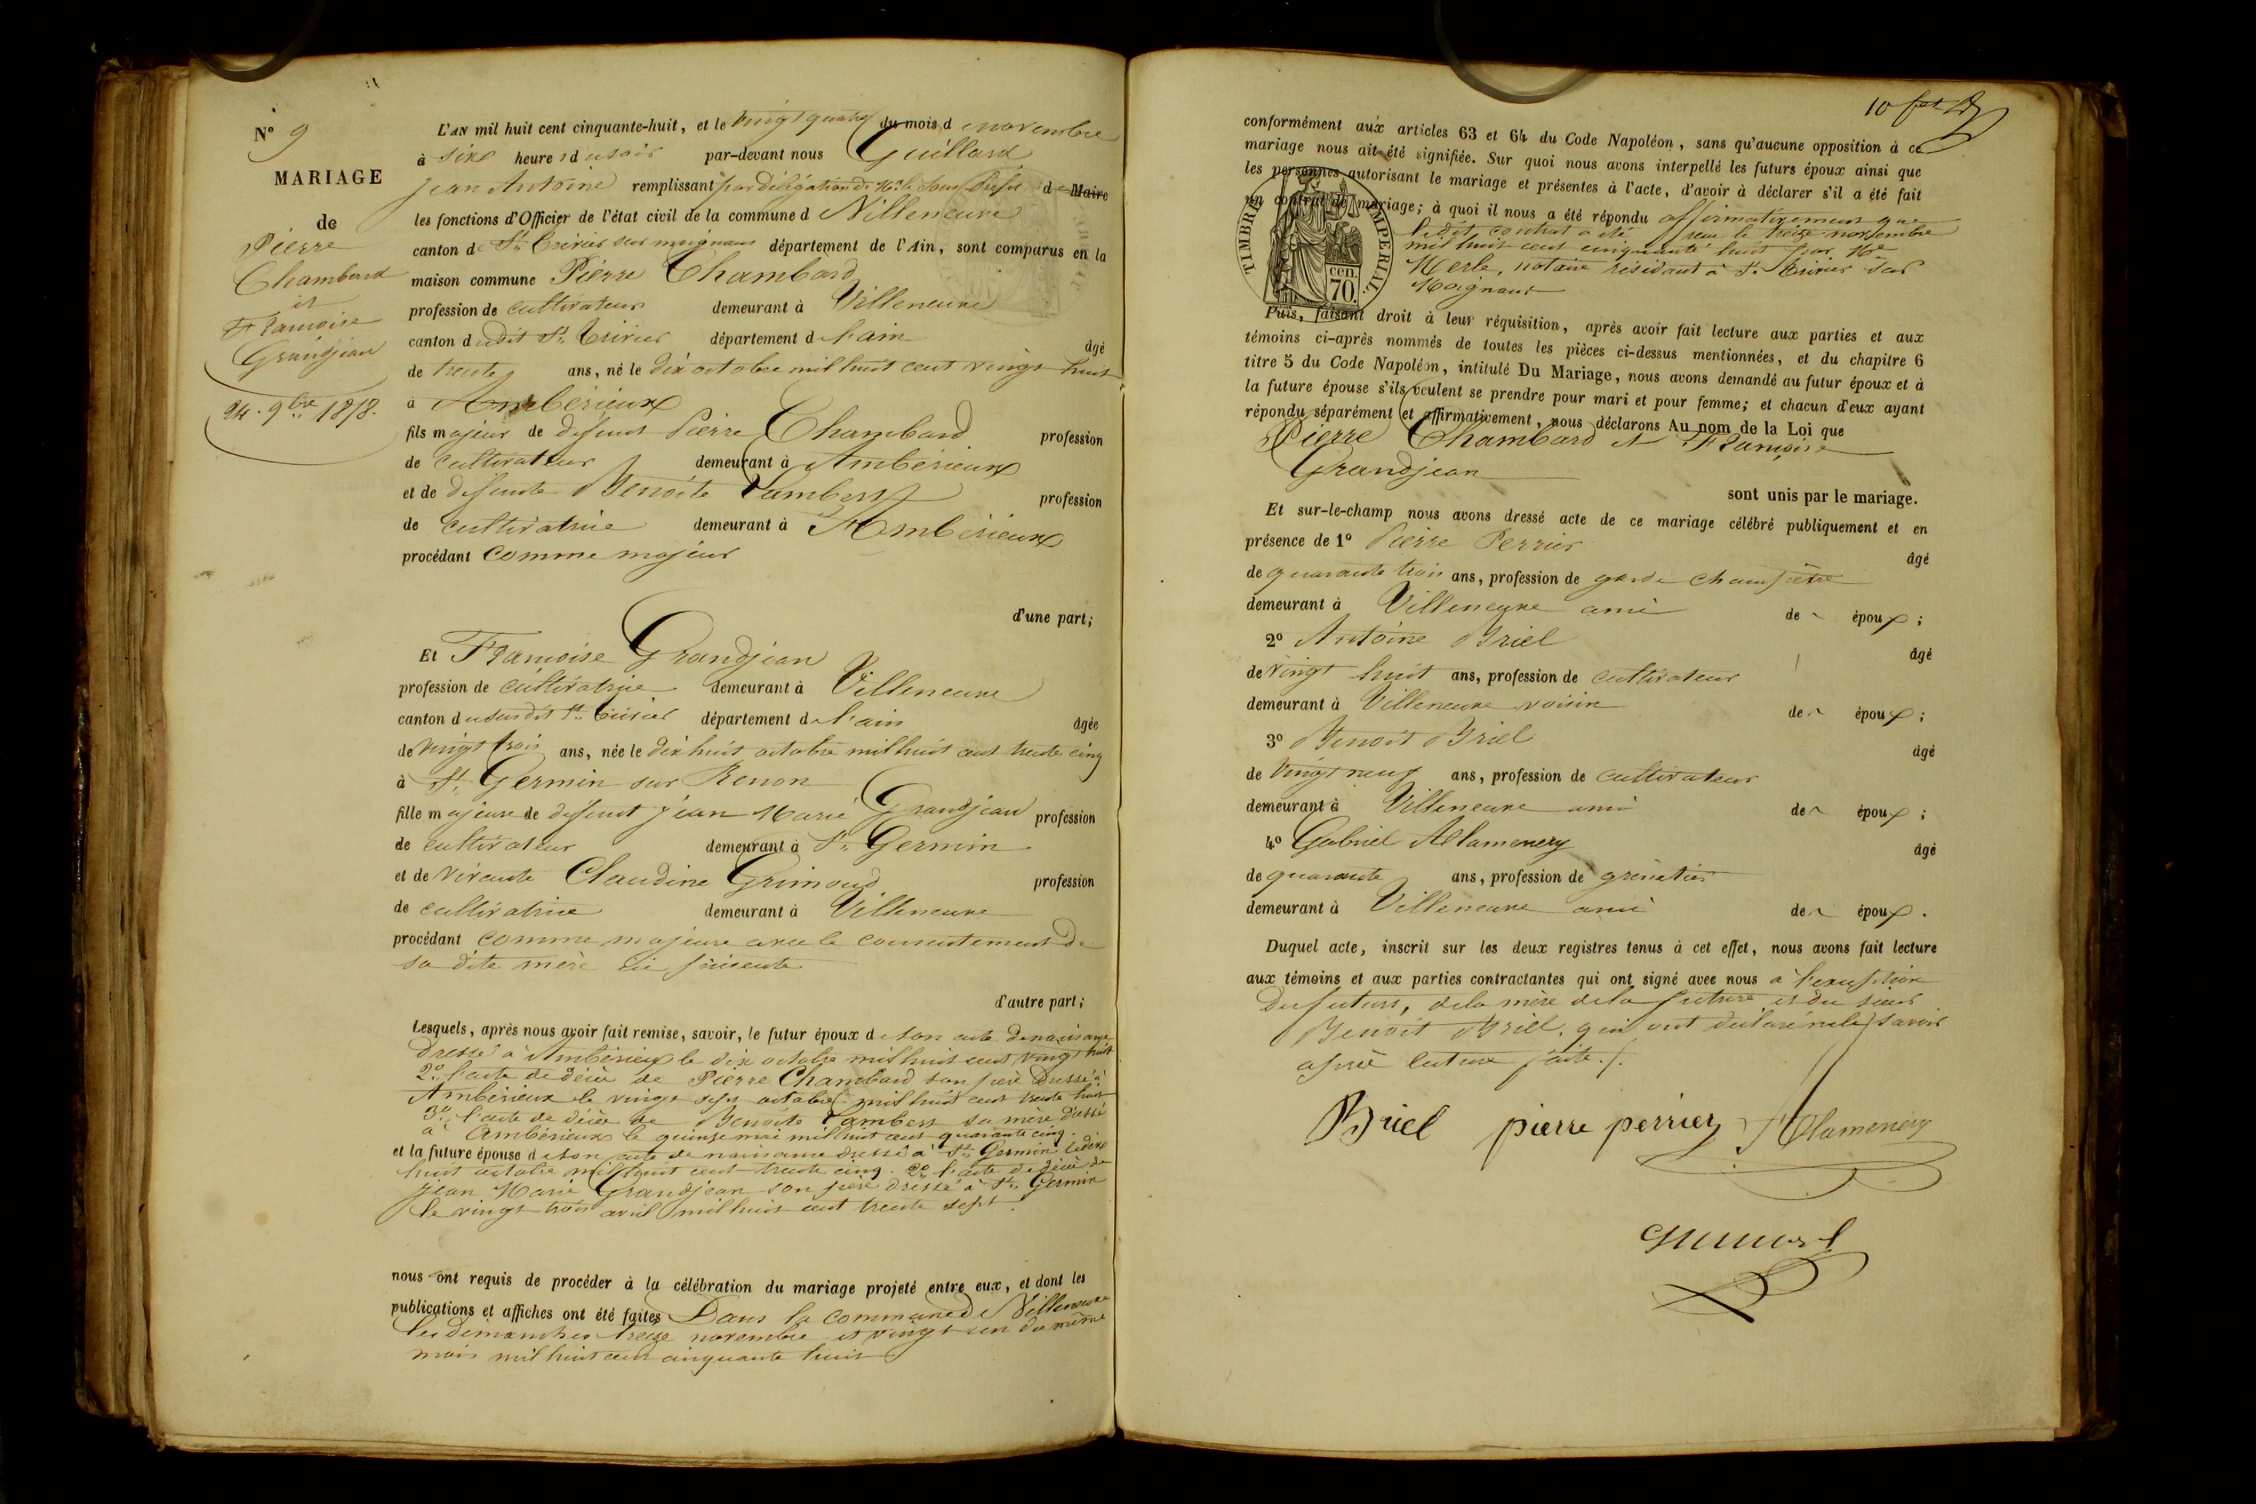 N° 9
MARIAGE
de
Pierre
Chambard
et
Françoise
Grandjean
24. 9bre 1858.
L'AN mil huit cent cinquante-huit, et le vingt quatre du mois d novembre
à sixe heures du soir par-devant nous Guillard
Jean Antoine remplissant par délégation de Mr. le Sous Préfet de Maire
les fonctions d'Officier de l'état civil de la commune d Villeneuve
canton de St. Trivier sur moignans département de l'Ain, sont comparus en la
maison commune Pierre Chambard
profession de cultivateur demeurant à Villeneuve
canton dudit St. Trivier département de l'ain âgé
de trente ans, né le dix octobre mil huit cent vingt huit
à Ambérieux
fils majeur de défunt Pierre Chambard profession
de cultivateur demeurant à Ambérieux
et de défunte Benoîte Lambert profession
de cultivatrice demeurant à Ambérieux
procédant comme majeur
d'une part;
Et Françoise Grandjean
profession de cultivatrice demeurant à Villeneuve
canton du susdit St. Trivier département de l'ain âgée
de vingt trois ans, née le dix huit octobre mil huit cent trente cinq
à St. Germin sur Renon
fille majeure de défunt Jean Marie Grandjean profession
de cultivateur demeurant à St. Germin
et de vivante Claudine Grimoud profession
de cultivatrice demeurant à Villeneuve
procédant comme majeure avec le consentement de
sa dite mère ici présente
d'autre part;
Lesquels, après nous avoir fait remise, savoir, le futur époux de son acte de naissance
Dressé à Ambérieux le dix octobre mil huit cent vingt huit
2° l'acte de décès de Pierre Chambard son père Dressé à
Ambérieux le vingt sept octobre mil huit cent trente huit
3° l'acte de décès de Benoîte Lambert sa mère dressé
à Ambérieux le quinze mai mil huit cent quarante cinq.
et la future épouse de son acte de naissance dressé à St. Germin le dixe
huit octobre mil huit cent trente cinq. 2° l'acte de décès de
Jean Marie Grandjean son père dressé à St. Germin
le vingt trois avril mil huit cent trente sept.
nous ont requis de procéder à la célébration du mariage projeté entre eux, et dont les
publications et affiches ont été faites Dans la commune de Villeneuve
les dimanches treize novembre et vingt un du même
mois mil huit cent cinquante huit
10 fet
conformément aux articles 63 et 64 du Code Napoléon, sans qu'aucune opposition à ce
mariage nous ait été signifiée. Sur quoi nous avons interpellé les futurs époux ainsi que
les personnes autorisant le mariage et présentes à l'acte, d'avoir à déclarer s'il a été fait
un contrat de mariage; à quoi il nous a été répondu affirmativement que
le dit contrat a été reçu le treize novembre
mil huit cent cinquante huit par Me
Merle, notaire résidant à St. Trivier sur
Moignans
TIMBRE IMPERIAL
70 cen.
Puis, faisant droit à leur réquisition, après avoir fait lecture aux parties et aux
témoins ci-après nommés de toutes les pièces ci-dessus mentionnées, et du chapitre 6
titre 5 du Code Napoléon, intitulé Du Mariage, nous avons demandé au futur époux et à
la future épouse s'ils veulent se prendre pour mari et pour femme; et chacun d'eux ayant
répondu séparément et affirmativement, nous déclarons Au nom de la Loi que
Pierre Chambard et Françoise
Grandjean
sont unis par le mariage.
Et sur-le-champ nous avons dressé acte de ce mariage célébré publiquement et en
présence de 1° Pierre Perrier âgé
de quarante trois ans, profession de garde champêtre
demeurant à Villeneuve ami de époux;
2° Antoine Briel âgé
de vingt huit ans, profession de cultivateur
demeurant à Villeneuve voisin de époux;
3° Benoit Briel âgé
de vingt neuf ans, profession de cultivateur
demeurant à Villeneuve ami de époux;
4° Gabriel Allamenery âgé
de quarante ans, profession de grènetier
demeurant à Villeneuve ami de époux.
Duquel acte, inscrit sur les deux registres tenus à cet effet, nous avons fait lecture
aux témoins et aux parties contractantes qui ont signé avec nous à l'exception
des futurs, de la mère de la future et du sieur
Benoit Briel, qui ont déclaré ne le savoir
après lecture faite./.
Briel pierre perrier Allamenery